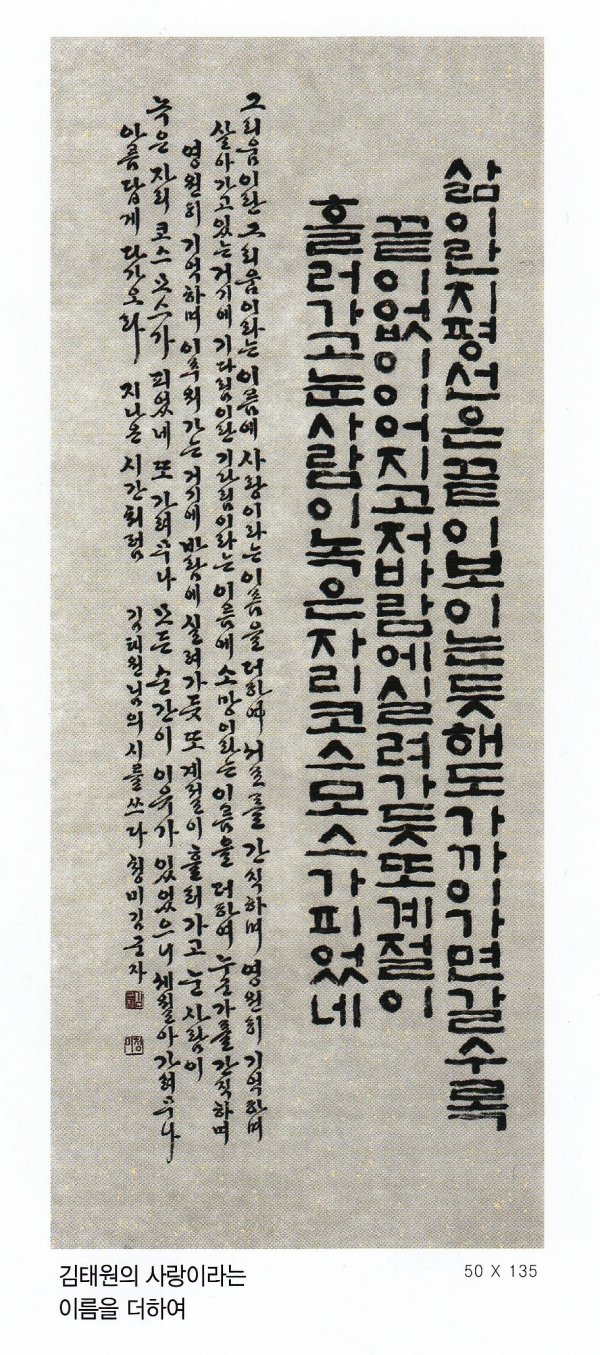 삶이란지평선은끝이보이는듯해도가까이가면갈수록
끝이없이이어지고저바람에실려가듯또계절이
흘러가고눈사람이녹은자리코스모스가피었네
그리움이란 그리움이라는 이름에 사랑이라는 이름을 더하여 서로를 간직하며 영원히 기억하며
살아가고있는거기에 기다림이란 기다림이라는 이름에 소망이라는 이름을 더하여 누군가를 간직하며
영원히 기억하며 이루워 가는 거기에 바람에 실려가듯 또 계절이 흘러가고 눈사람이
녹은 자리 코스모스가 피었네 또 가려무나 모든 순간이 이유가 있었으니 세월아 가려무나
아름답게 다가오라 지나온 시간처럼 김태원님의 시를 쓰다 청미 김군자
김태원의 사랑이라는
이름을 더하여
50 X 135